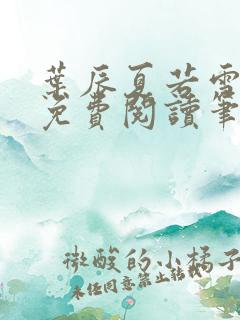 葉辰夏若雪
免費閱讀筆
微酸的小橘子
未經同意禁止轉載